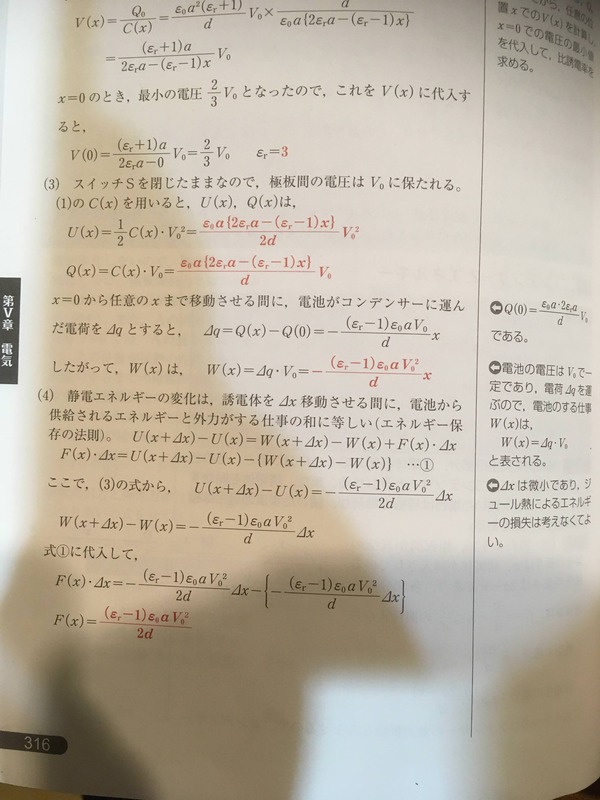 V(x)=Q₀/C(x)=ε₀a²(εᵣ+1)/d V₀×d/ε₀a{2εᵣa−(εᵣ−1)x}
=(εᵣ+1)a/2εᵣa−(εᵣ−1)x V₀
x=0のとき，最小の電圧 2/3 V₀ となったので，これを V(x) に代入す
ると，
V(0)=(εᵣ+1)a/2εᵣa−0 V₀=2/3 V₀ εᵣ=3
(3) スイッチSを閉じたままなので，極板間の電圧は V₀ に保たれる。
(1)の C(x) を用いると，U(x)，Q(x)は，
U(x)=1/2 C(x)・V₀²=ε₀a{2εᵣa−(εᵣ−1)x}/2d V₀²
Q(x)=C(x)・V₀=ε₀a{2εᵣa−(εᵣ−1)x}/d V₀
x=0から任意のxまで移動させる間に，電池がコンデンサーに運ん
だ電荷を Δq とすると， Δq=Q(x)−Q(0)=−(εᵣ−1)ε₀aV₀/d x
したがって，W(x)は， W(x)=Δq・V₀=−(εᵣ−1)ε₀aV₀²/d x
(4) 静電エネルギーの変化は，誘電体を Δx 移動させる間に，電池から
供給されるエネルギーと外力がする仕事の和に等しい(エネルギー保
存の法則)。 U(x+Δx)−U(x)=W(x+Δx)−W(x)+F(x)・Δx
F(x)・Δx=U(x+Δx)−U(x)−{W(x+Δx)−W(x)} …①
ここで，(3)の式から， U(x+Δx)−U(x)=−(εᵣ−1)ε₀aV₀²/2d Δx
W(x+Δx)−W(x)=−(εᵣ−1)ε₀aV₀²/d Δx
式①に代入して，
F(x)・Δx=−(εᵣ−1)ε₀aV₀²/2d Δx−{−(εᵣ−1)ε₀aV₀²/d Δx}
F(x)=(εᵣ−1)ε₀aV₀²/2d
置xでのV(x)を計算し，
x=0での電圧の最小値
を代入して，比誘電率を
求める。
Q(0)=ε₀a・2εᵣa/d V₀
である。
電池の電圧は V₀で一
定であり，電荷 Δq を運
ぶので，電池のする仕事
W(x)は，
W(x)=Δq・V₀
と表される。
Δx は微小であり，ジ
ュール熱によるエネルギ
ーの損失は考えなくてよ
い。
第Ⅴ章 電気
316